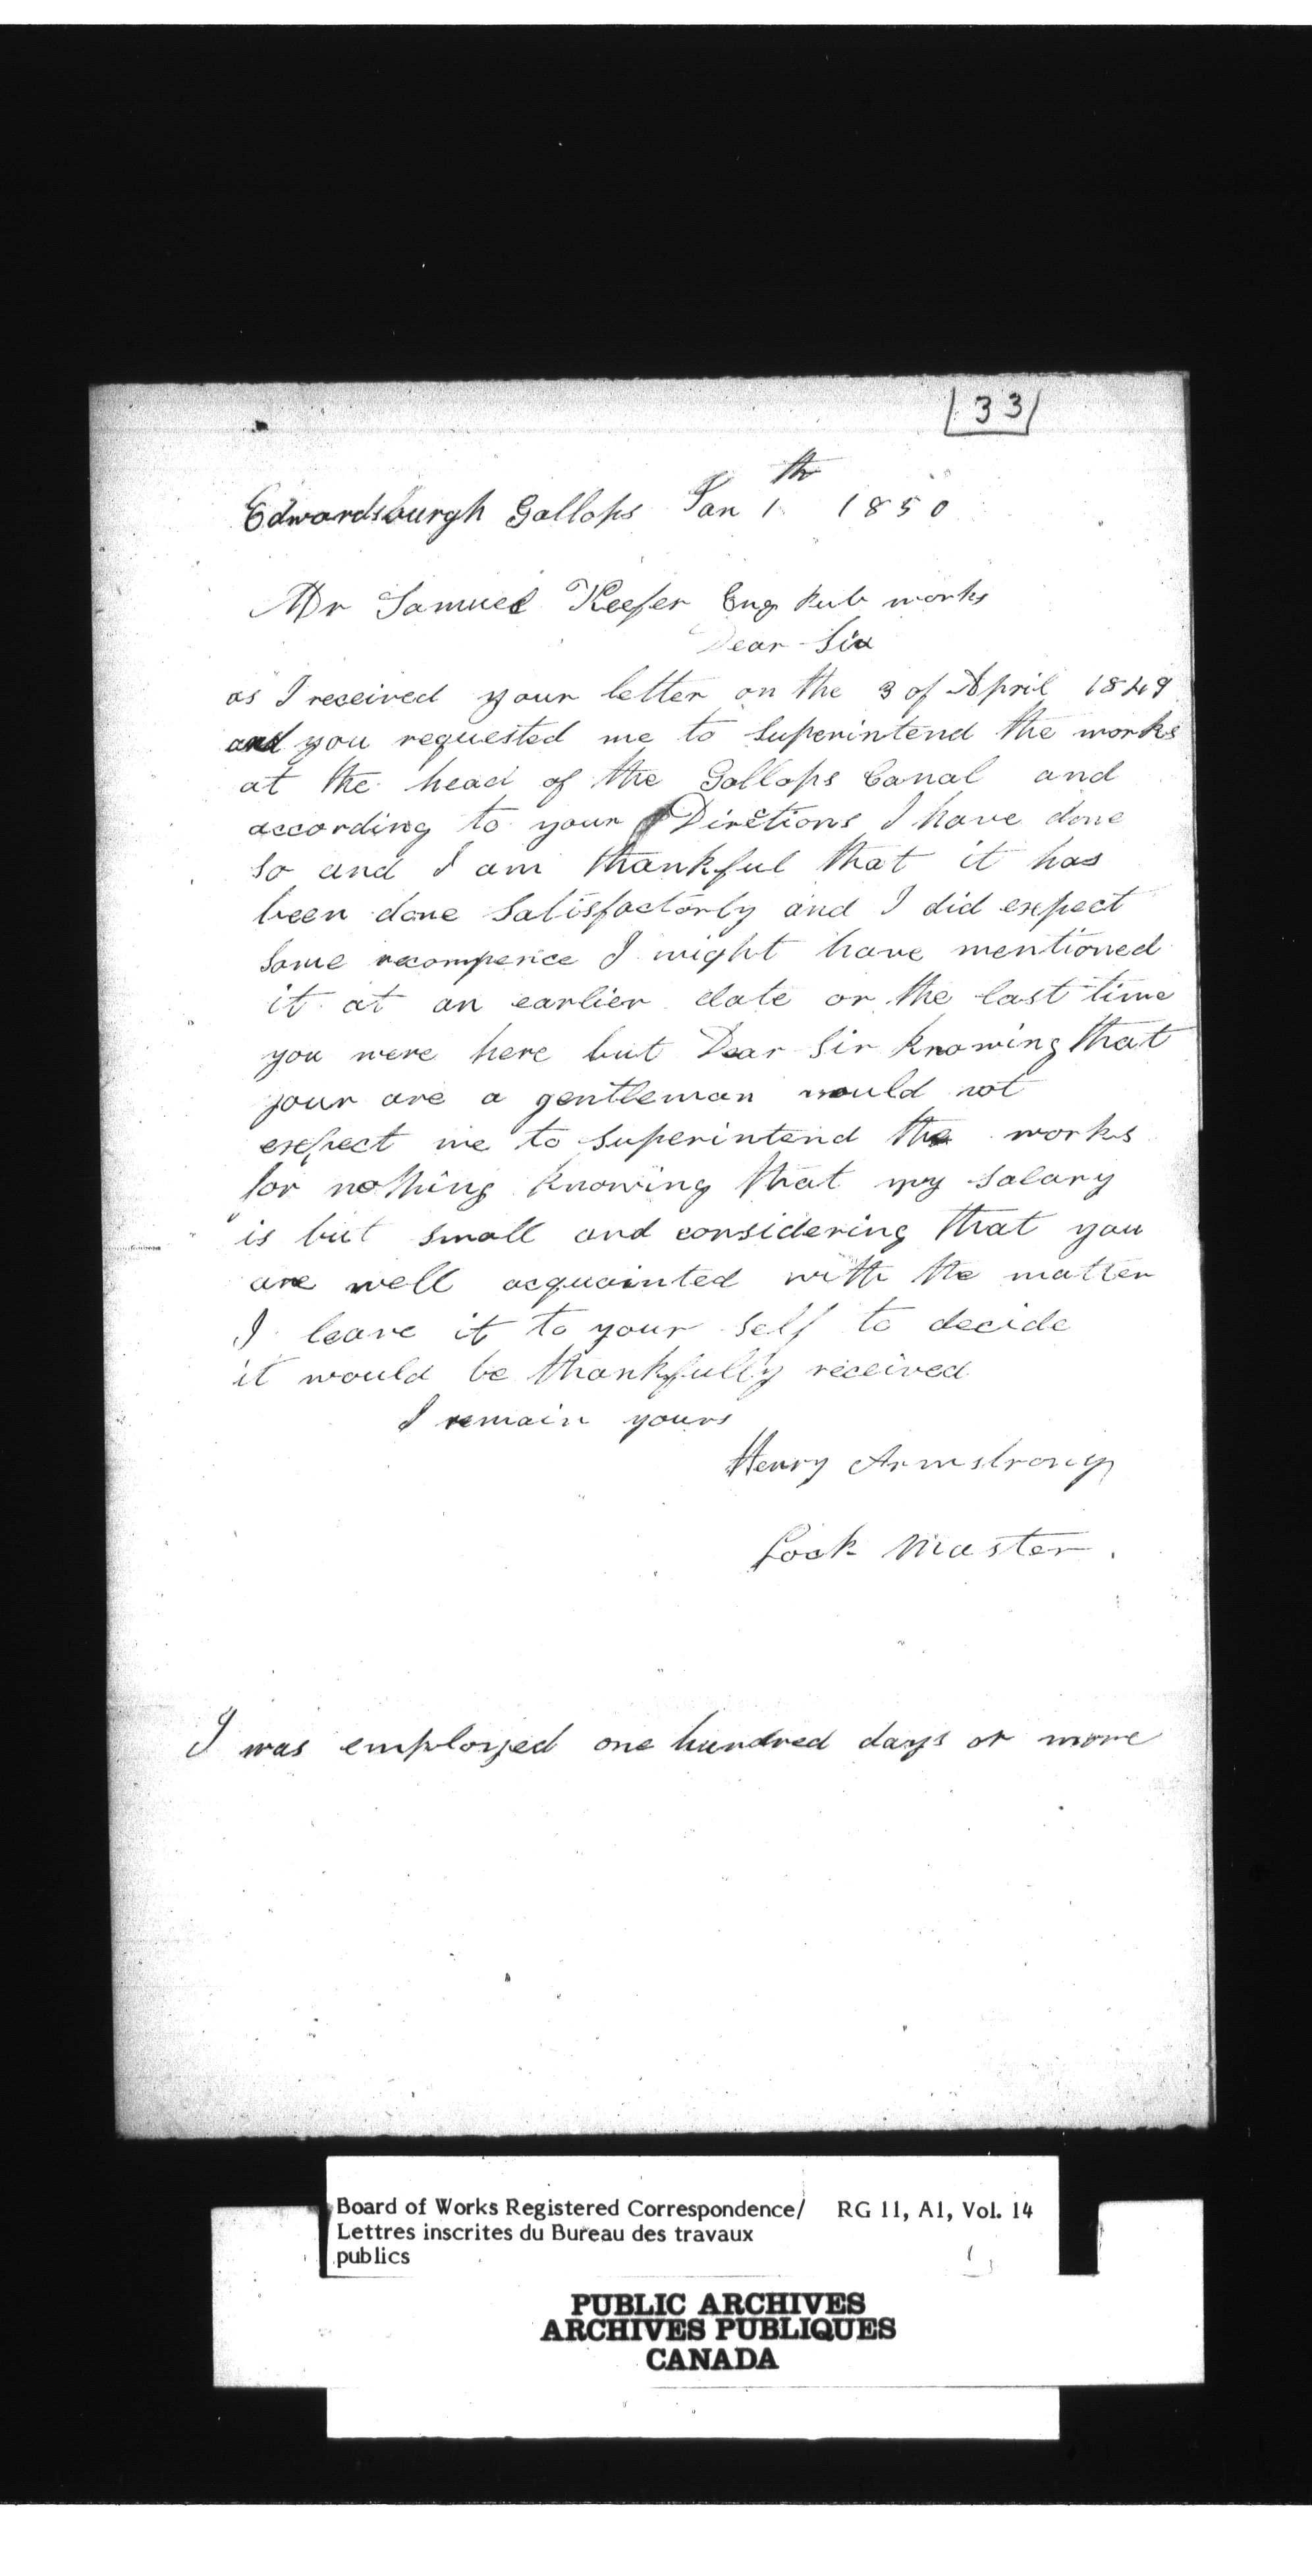 33
Edwardsburgh Gallops Jan 1th 1850
Mr Samuel Keefer Eng Pub works
Dear Sir
as I received your letter on the 3 of April 1849
and you requested me to Superintend the works
at the head of the Gallops Canal and
according to your Dirctions I have done
so and I am thankful that it has
been done Satisfactorly and I did expect
some recompence I might have mentioned
it at an earlier date or the last time
you were here but Dear Sir knowing that
your are a gentleman would not
expect me to superintend the works
for nothing knowing that my salary
is but small and considering that you
are well acquainted with the matter
I leave it to your self to decide
it would be thankfully received
I remain yours
Henry Armstrong
Lock Master.
I was employed one hundred days or more
Board of Works Registered Correspondence/ RG 11, A1, Vol. 14
Lettres inscrites du Bureau des travaux
publics
PUBLIC ARCHIVES
ARCHIVES PUBLIQUES
CANADA